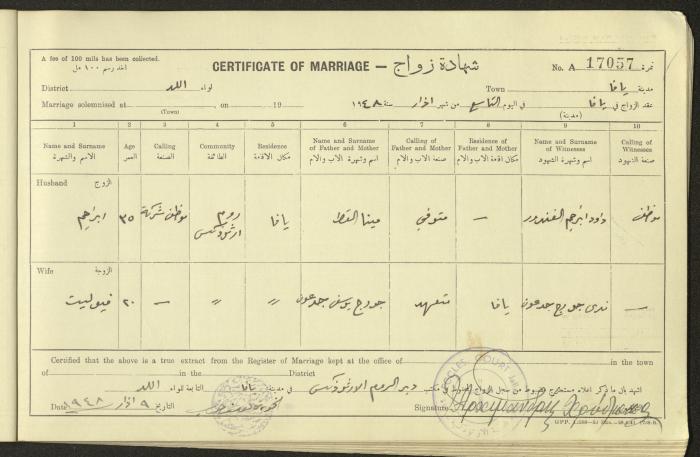 A fee of 100 mils has been collected.
اخذ رسم ١٠٠ مل
CERTIFICATE OF MARRIAGE — شهادة زواج
No. A 17057 نمرة
District لواء اللد
Town مدينة يافا
Marriage solemnised at , on 19
(Town)
عقد الزواج في يافا في اليوم التاسع من شهر اذار سنة ١٩٤٨
(مدينة)
1 2 3 4 5 6 7 8 9 10
Name and Surname الاسم والشهرة
Age العمر
Calling الصنعة
Community الطائفة
Residence مكان الاقامة
Name and Surname of Father and Mother اسم وشهرة الاب والام
Calling of Father and Mother صنعة الاب والام
Residence of Father and Mother مكان اقامة الاب والام
Name and Surname of Witnesses اسم وشهرة الشهود
Calling of Witnesses صنعة الشهود
Husband الزوج
ابراهيم
٣٥
موظف شركة
روم ارثوذكس
يافا
مينا القط
متوفي
—
داود ابراهيم الغندور
موظف
Wife الزوجة
فيوليت
٢٠
—
〃
〃
جورج يوسف جدعون
متعهد
يافا
ندى جورج جدعون
—
Certified that the above is a true extract from the Register of Marriage kept at the office of in the town
of in the District
اشهد بال ما ذكر اعلاه مستخرج مضبوط من سجل الزواج المحفوظ في مكتب دير الروم الارثوذكس في مدينة يافا التابعة للواء اللد
Date ٩ اذار ١٩٤٨ التاريخ
Signature